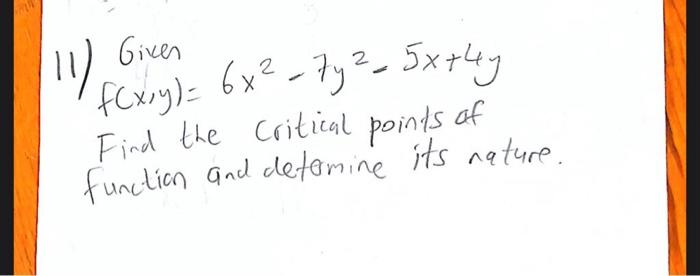 11) Given
f(x,y)= 6x² - 7y² - 5x+4y
Find the critical points of
function and detemine its nature.